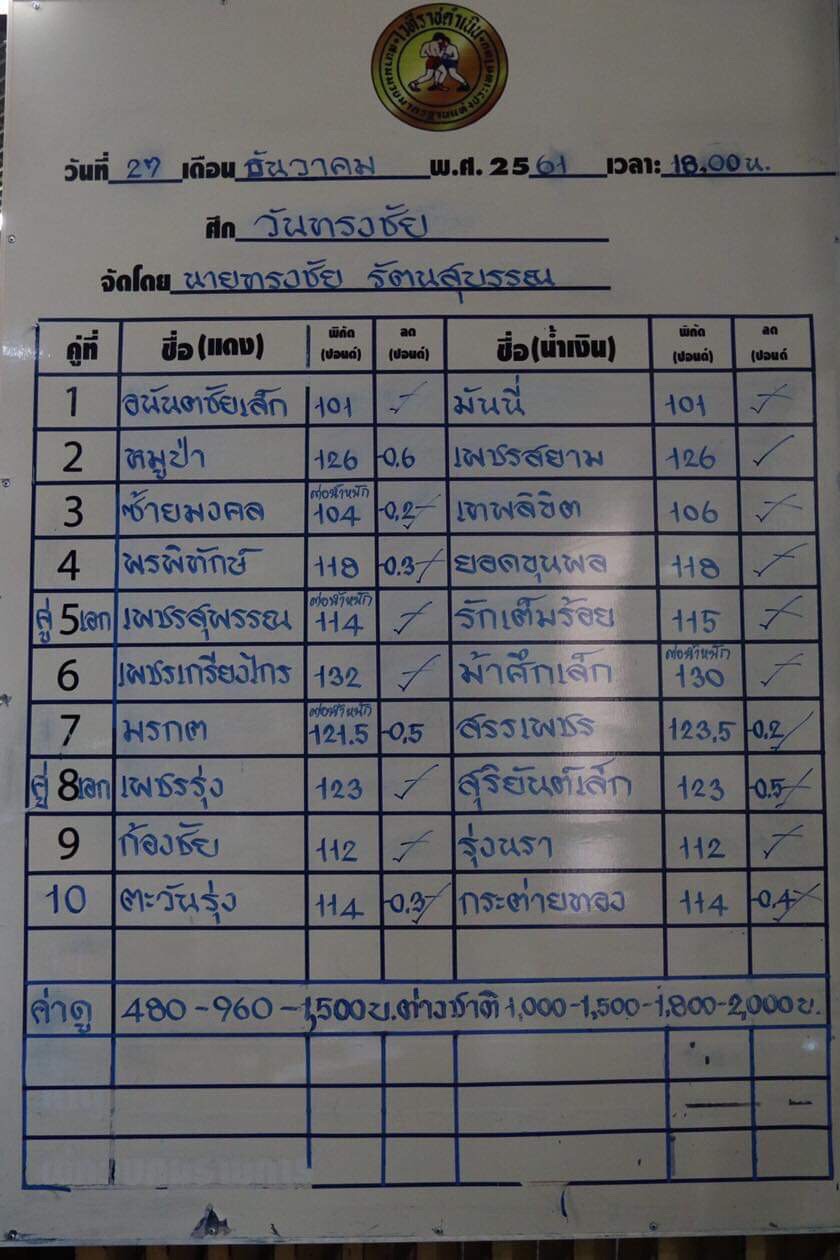 เวทีราชดำเนิน
วันที่ 27 เดือน ธันวาคม พ.ศ. 2561 เวลา: 18.00 น.
ศึก วันทรงชัย
จัดโดย นายทรงชัย รัตนสุบรรณ
คู่ที่ ชื่อ (แดง) พิกัด (ปอนด์) ลด (ปอนด์) ชื่อ (น้ำเงิน) พิกัด (ปอนด์) ลด (ปอนด์
1 อนันตชัยเล็ก 101 ✓ มันนี่ 101 ✓
2 หมูป่า 126 -0.6 เพชรสยาม 126 ✓
3 ซ้ายมงคล ต่อน้ำหนัก 104 -0.2 ✓ เทพลิขิต 106 ✓
4 พรพิทักษ์ 118 -0.3 ✓ ยอดขุนพล 118 ✓
คู่ 5 เอก เพชรสุพรรณ ต่อน้ำหนัก 114 ✓ รักเต็มร้อย 115 ✓
6 เพชรเกรียงไกร 132 ✓ ม้าศึกเล็ก ต่อน้ำหนัก 130 ✓
7 มรกต ต่อน้ำหนัก 121.5 -0.5 สรรเพชร 123.5 -0.2 ✓
คู่ 8 เอก เพชรรุ่ง 123 ✓ สุริยันต์เล็ก 123 -0.5 ✓
9 ก้องชัย 112 ✓ รุ่งนรา 112 ✓
10 ตะวันรุ่ง 114 -0.3 ✓ กระต่ายทอง 114 -0.4 ✓
ค่าดู 480-960-1,500 บ. ต่างชาติ 1,000-1,500-1,800-2,000 บ.